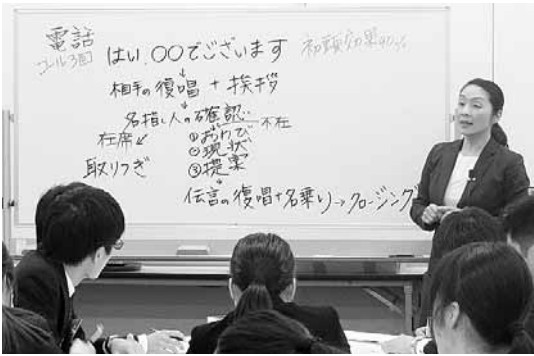 電話
コール3回
はい、〇〇でございます
初頭効果
相手の復唱 + 挨拶
↓
名指し人の確認…不在
在席↙ ①おわび
②現状
取りつぎ ③提案
↓
伝言の復唱+名乗り→クロージング